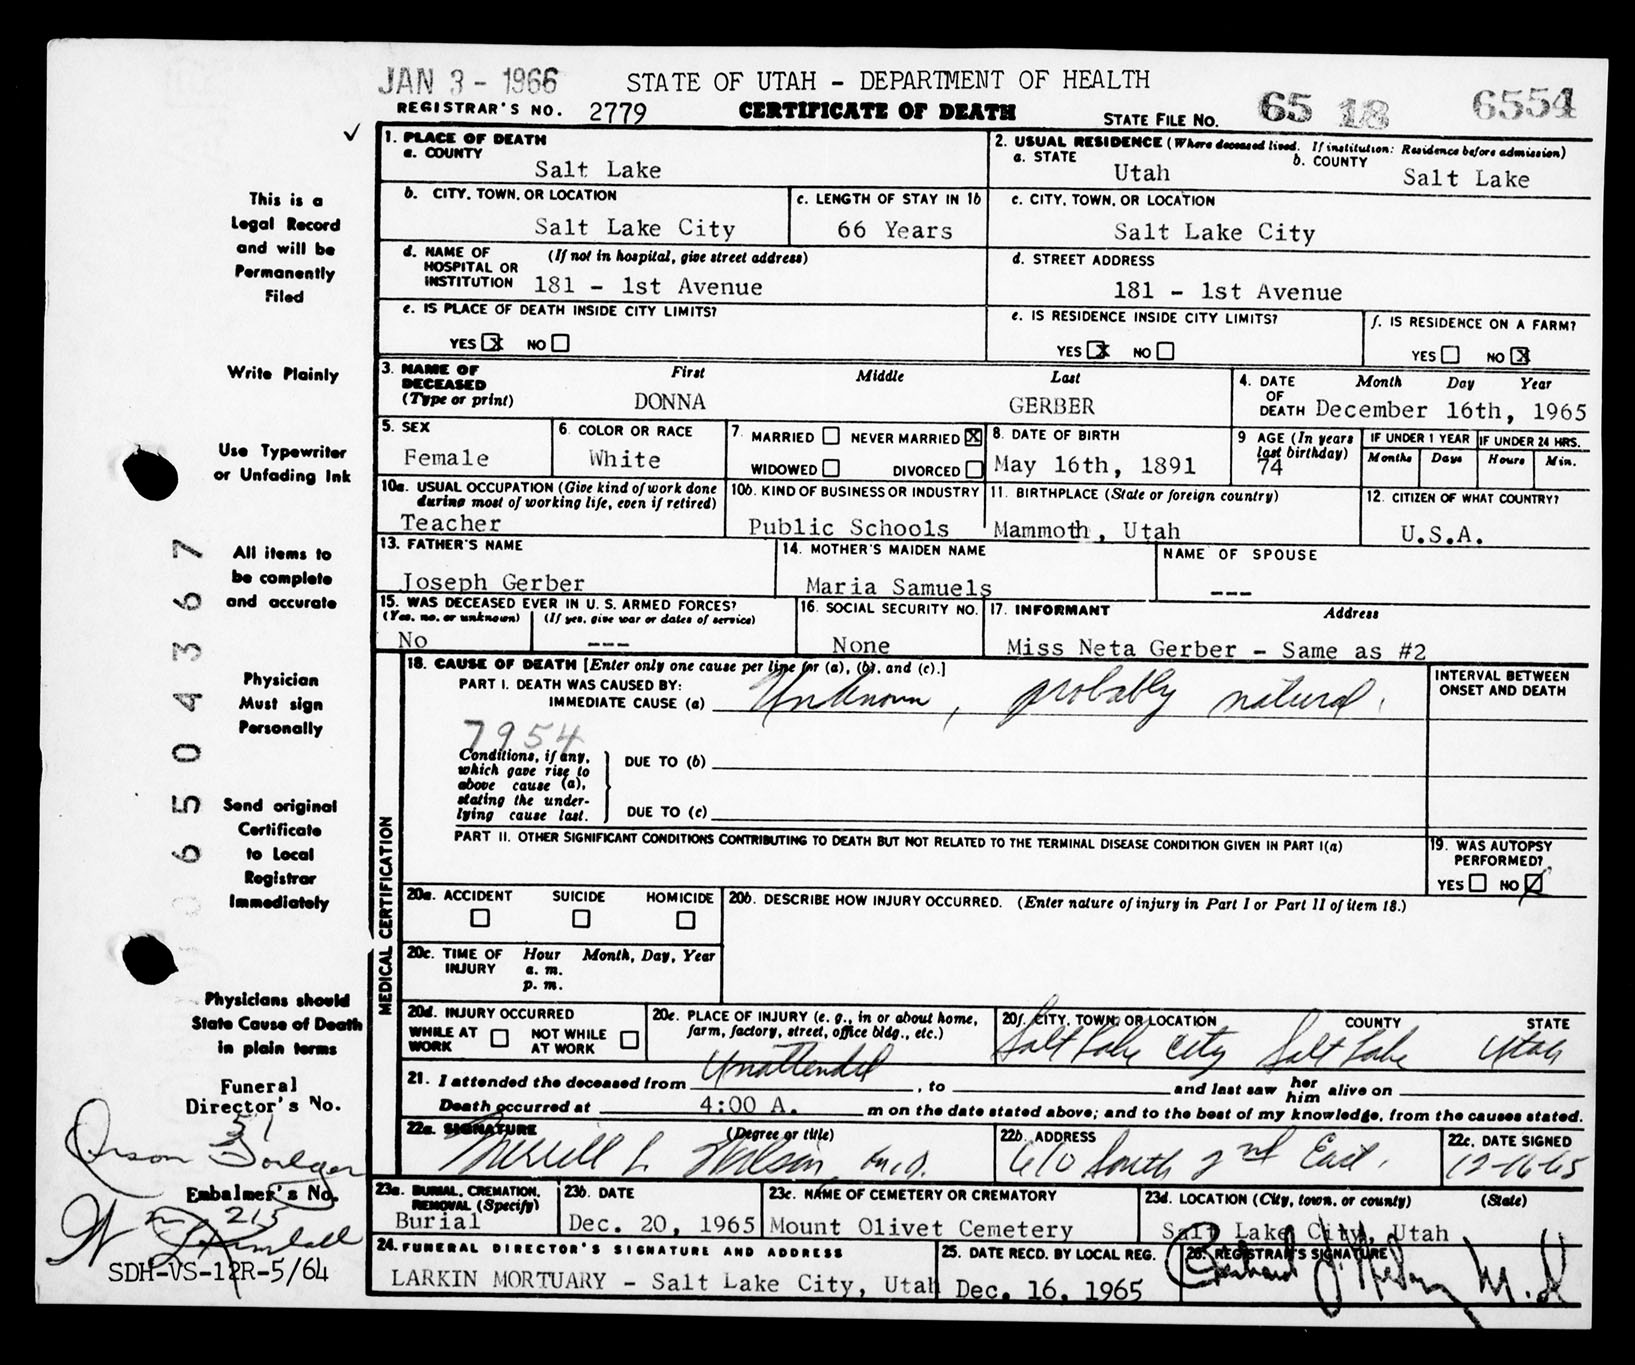 JAN 3 - 1966 STATE OF UTAH - DEPARTMENT OF HEALTH
REGISTRAR'S NO. 2779 CERTIFICATE OF DEATH STATE FILE NO. 65 18 6554
✓
This is a
Legal Record
and will be
Permanently
Filed
Write Plainly
Use Typewriter
or Unfading Ink
All items to
be complete
and accurate
Physician
Must sign
Personally
Send original
Certificate
to Local
Registrar
Immediately
Physicians should
State Cause of Death
in plain terms
Funeral
Director's No.
51
Orson
Embalmer's No.
215
SDH-VS-12R-5/64
065043 67
1. PLACE OF DEATH
a. COUNTY
Salt Lake
2. USUAL RESIDENCE (Where deceased lived. If institution: Residence before admission)
a. STATE b. COUNTY
Utah Salt Lake
b. CITY, TOWN, OR LOCATION
Salt Lake City
c. LENGTH OF STAY IN 1b
66 Years
c. CITY, TOWN, OR LOCATION
Salt Lake City
d. NAME OF (If not in hospital, give street address)
HOSPITAL OR
INSTITUTION 181 - 1st Avenue
d. STREET ADDRESS
181 - 1st Avenue
e. IS PLACE OF DEATH INSIDE CITY LIMITS?
YES X NO
e. IS RESIDENCE INSIDE CITY LIMITS?
YES X NO
f. IS RESIDENCE ON A FARM?
YES NO X
3. NAME OF First Middle Last
DECEASED
(Type or print) DONNA GERBER
4. DATE Month Day Year
OF
DEATH December 16th, 1965
5. SEX
Female
6. COLOR OR RACE
White
7. MARRIED NEVER MARRIED X
WIDOWED DIVORCED
8. DATE OF BIRTH
May 16th, 1891
9 AGE (In years
last birthday)
74
IF UNDER 1 YEAR IF UNDER 24 HRS.
Months Days Hours Min.
10a. USUAL OCCUPATION (Give kind of work done
during most of working life, even if retired)
Teacher
10b. KIND OF BUSINESS OR INDUSTRY
Public Schools
11. BIRTHPLACE (State or foreign country)
Mammoth, Utah
12. CITIZEN OF WHAT COUNTRY?
U.S.A.
13. FATHER'S NAME
Joseph Gerber
14. MOTHER'S MAIDEN NAME
Maria Samuels
NAME OF SPOUSE
---
15. WAS DECEASED EVER IN U. S. ARMED FORCES?
(Yes, no, or unknown) (If yes, give war or dates of service)
No ---
16. SOCIAL SECURITY NO.
None
17. INFORMANT Address
Miss Neta Gerber - Same as #2
MEDICAL CERTIFICATION
18. CAUSE OF DEATH [Enter only one cause per line for (a), (b), and (c).]
PART I. DEATH WAS CAUSED BY:
IMMEDIATE CAUSE (a) Unknown, probably natural.
INTERVAL BETWEEN
ONSET AND DEATH
7954
Conditions, if any,
which gave rise to
above cause (a),
stating the under-
lying cause last.
DUE TO (b)
DUE TO (c)
PART II. OTHER SIGNIFICANT CONDITIONS CONTRIBUTING TO DEATH BUT NOT RELATED TO THE TERMINAL DISEASE CONDITION GIVEN IN PART I(a)
19. WAS AUTOPSY
PERFORMED?
YES NO
20a. ACCIDENT SUICIDE HOMICIDE
20b. DESCRIBE HOW INJURY OCCURRED. (Enter nature of injury in Part I or Part II of item 18.)
20c. TIME OF Hour Month, Day, Year
INJURY a. m.
p. m.
20d. INJURY OCCURRED
WHILE AT NOT WHILE
WORK AT WORK
20e. PLACE OF INJURY (e. g., in or about home,
farm, factory, street, office bldg., etc.)
20f. CITY, TOWN, OR LOCATION COUNTY STATE
Salt Lake City Salt Lake Utah
21. I attended the deceased from Unattended, to and last saw her him alive on
Death occurred at 4:00 A. m on the date stated above; and to the best of my knowledge, from the causes stated.
22a. SIGNATURE (Degree or title)
Merrill L. Wilson, M.D.
22b. ADDRESS
610 South 2nd East.
22c. DATE SIGNED
12-16-65
23a. BURIAL, CREMATION,
REMOVAL (Specify)
Burial
23b. DATE
Dec. 20, 1965
23c. NAME OF CEMETERY OR CREMATORY
Mount Olivet Cemetery
23d. LOCATION (City, town, or county) (State)
Salt Lake City, Utah
24. FUNERAL DIRECTOR'S SIGNATURE AND ADDRESS
LARKIN MORTUARY - Salt Lake City, Utah
25. DATE RECD. BY LOCAL REG.
Dec. 16, 1965
26. REGISTRAR'S SIGNATURE
M.D.